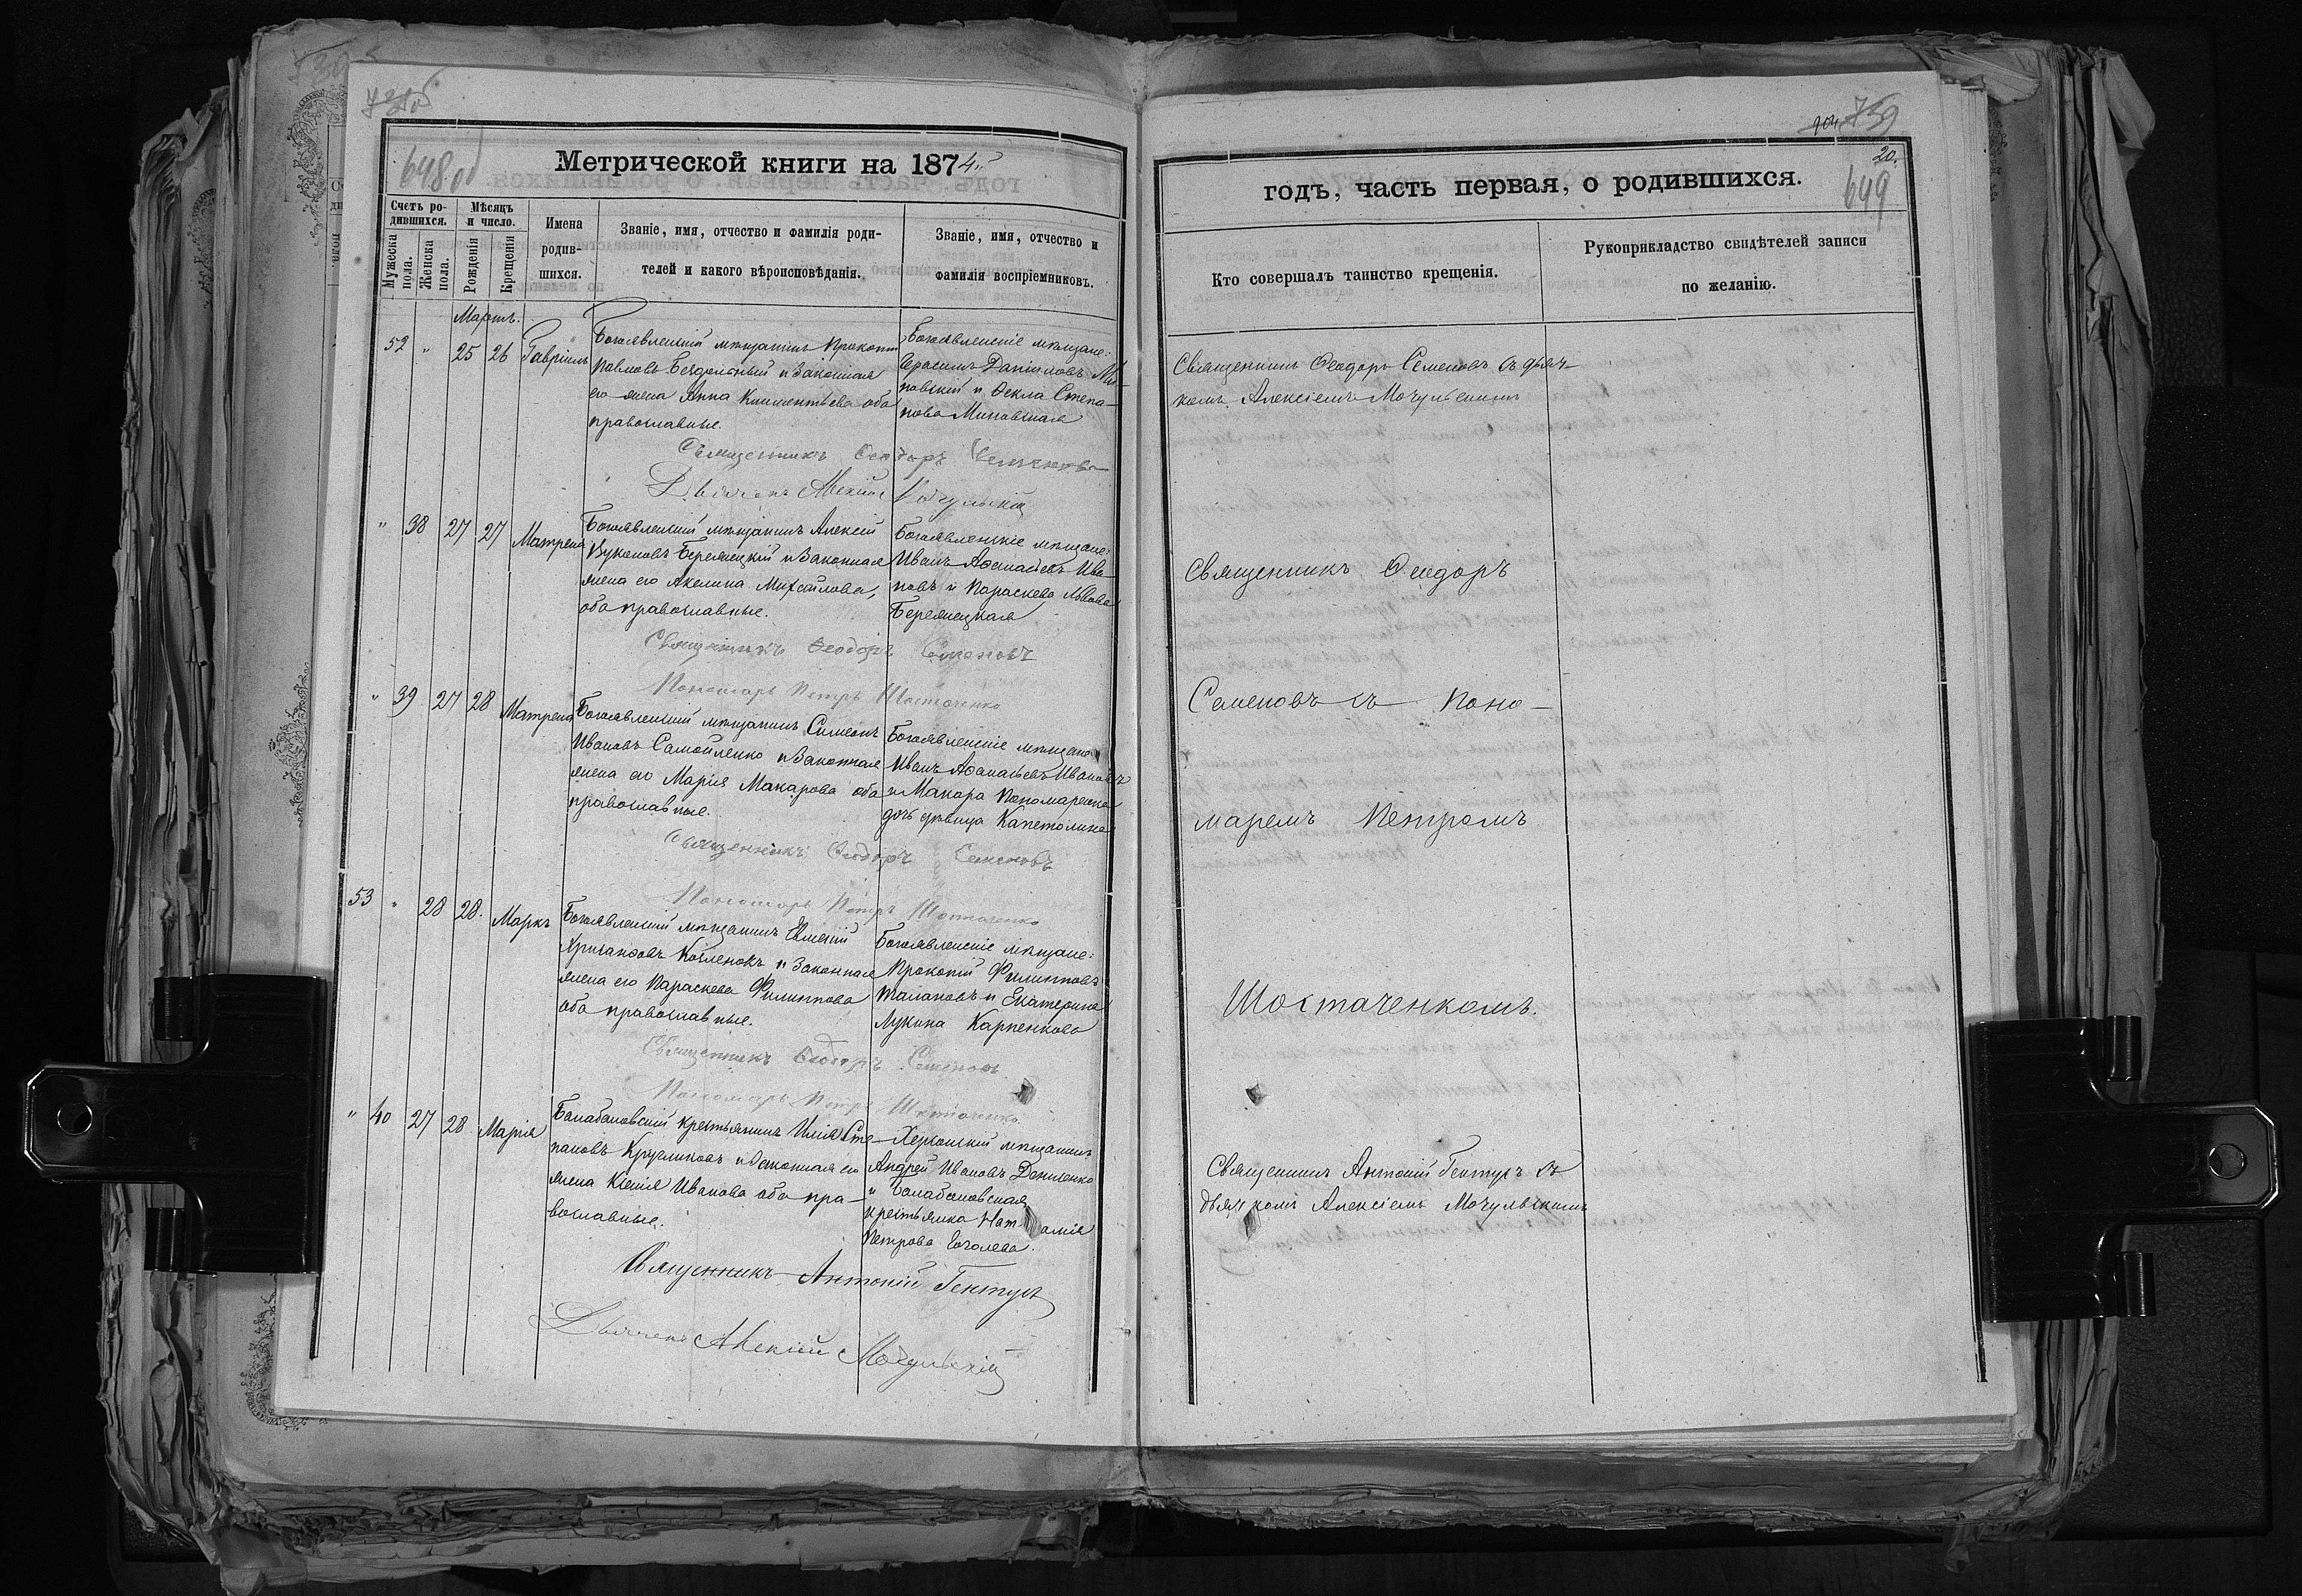 648 об
Метрической книги на 1874й
Счетъ ро-
дившихся.
Мужеска
пола.
Женска
пола.
Мѣсяцъ
и число.
Рожденія
Крещенія
Имена
родив-
шихся.
Званіе, имя, отчество и фамилія роди-
телей и какого вѣроисповѣданія.
Званіе, имя, отчество и
фамилія воспріемниковъ.
Мартъ.
52 " 25 26 Гавріилъ
Богоявленскій мѣщанинъ Прокопій
Павловъ Бездольный и законная
его жена Анна Климентьева оба
православные.
Богоявленскіе мѣщане:
Герасимъ Даніиловъ Ми-
новскій и Ѳекла Степа-
нова Миновская
Священникъ Ѳеодоръ Семеновъ
Дьячекъ Алексій Мочульскій
" 38 27 27 Матрена
Богоявленскій мѣщанинъ Алексій
Вуколовъ Бережецкій и законная
жена его Акелина Михайлова,
оба православные.
Богоявленскіе мѣщане:
Иванъ Аѳанасіевъ Ива-
новъ и Параскева Львова
Бережецкая
Священникъ Ѳеодоръ Семеновъ
Пономарь Петръ Шостаченко
" 39 27 28 Матрена
Богоявленскій мѣщанинъ Симеонъ
Ивановъ Самойленко и законная
жена его Марія Макарова оба
православные.
Богоявленскіе мѣщане:
Иванъ Аѳанасіевъ Ивановъ
и Макара Пономаренка
дочь дѣвица Капетолина
Священникъ Ѳеодоръ Семеновъ
Пономарь Петръ Шостаченко
53 " 28 28. Маркъ
Богоявленскій мѣщанинъ Евменій
Хрисанфовъ Козленокъ и законная
жена его Параскева Филиппова
оба православные.
Богоявленскіе мѣщане:
Прокопій Филипповъ
Талановъ и Екатерина
Лукина Карпенкова
Священникъ Ѳеодоръ Семеновъ
Пономарь Петръ Шостаченко
" 40 27 28 Марія
Балабановскій крестьянинъ Илія Сте-
пановъ Кругликовъ и законная его
жена Ксенія Иванова оба пра-
вославные.
Херсонскій мѣщанинъ
Андрей Ивановъ Денисенко
и Балабановская
крестьянка Наталія
Петрова Гоголева.
Священникъ Антоній Гентушъ
Дьячекъ Алексій Мочульскій
739
20.
649
годъ, часть первая, о родившихся.
Кто совершалъ таинство крещенія.
Рукоприкладство свидѣтелей записи
по желанію.
Священникъ Ѳеодоръ Семеновъ съ дьяч-
комъ Алексіемъ Мочульскимъ
Священникъ Ѳеодоръ
Семеновъ съ Поно-
маремъ Петромъ
Шостаченкомъ.
Священникъ Антоній Гентушъ съ
дьячкомъ Алексіемъ Мочульскимъ